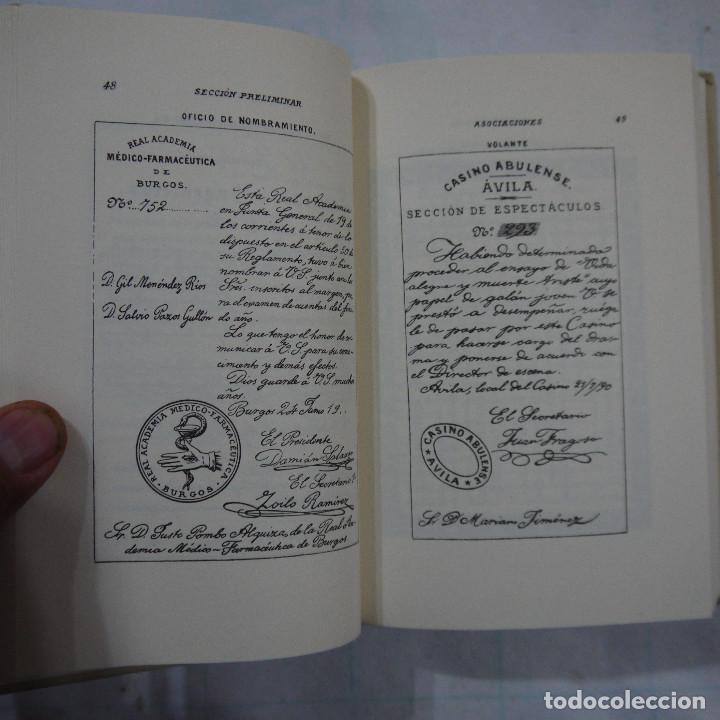 48
SECCIÓN PRELIMINAR
OFICIO DE NOMBRAMIENTO.
REAL ACADEMIA
MÉDICO-FARMACÉUTICA
DE
BURGOS.
Nº 752
D. Gil Menéndez Rios
D. Salvio Pazos Gullón
Esta Real Academia
en Junta General de 19 de
los corrientes á tenor de lo
dispuesto en el artículo 30 de
su Reglamento, tuvo á bien
nombrar á V.S. junto con los
Sres. inscritos al margen, pa
ra el examen de cuentas del
do año.
Lo que tengo el honor de
municar á V.S. para su cono
cimiento y demás efectos.
Dios guarde á V.S. muchos
años.
Burgos 2 de Junio 19
El Presidente
Damián
El Secretario
Zoilo Ramírez
REAL ACADEMIA MEDICO-FARMACÉUTICA
BURGOS
Sr. D. Justo Pombo Alquiza, de la Real Aca
demia Médico-Farmacéutica de Burgos
ASOCIACIONES
49
VOLANTE
CASINO ABULENSE.
ÁVILA.
SECCIÓN DE ESPECTÁCULOS
Nº 293
Habiendo determinado
proceder al ensayo de "Vida
alegre y muerte triste" cuyo
papel de galán joven V. se
prestó a desempeñar, ruége
le de pasar por este Casino
para hacerse cargo del dra
ma y ponerse de acuerdo con
el Director de escena.
Avila, local del Casino
El Secretario
Juan Fragoso
CASINO ABULENSE
AVILA
Sr. D. Mariano Jiménez
todocoleccion